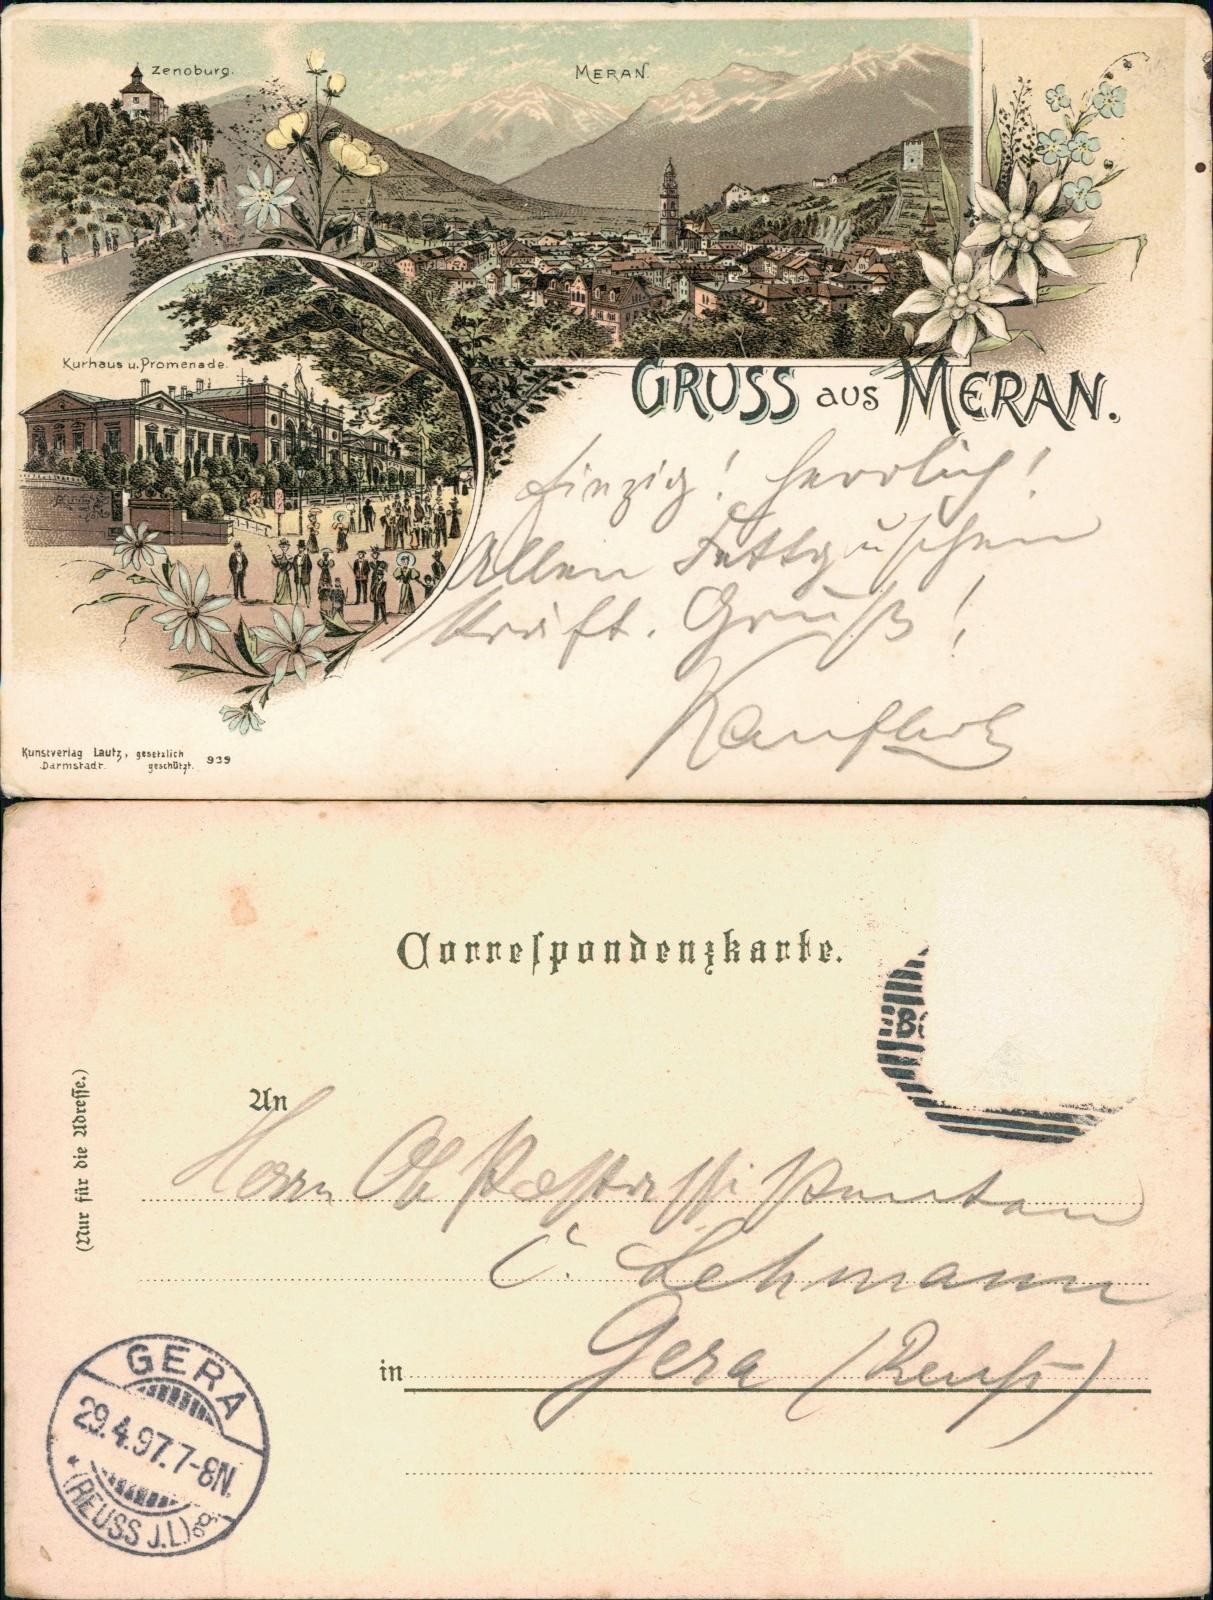 Zenoburg.
MERAN.
Kurhaus u. Promenade.
GRUSS aus MERAN.
Einzig! Herrlich!
Allen
kräft. Gruß!
Kunstverlag Lautz, gesetzlich
Darmstadt. geschützt. 939
Correspondenzkarte.
(Nur für die Adresse.)
An
Herrn
C. Lehmann
in Gera (Reuß)
GERA
29.4.97.7-8N.
(REUSS J.L.)